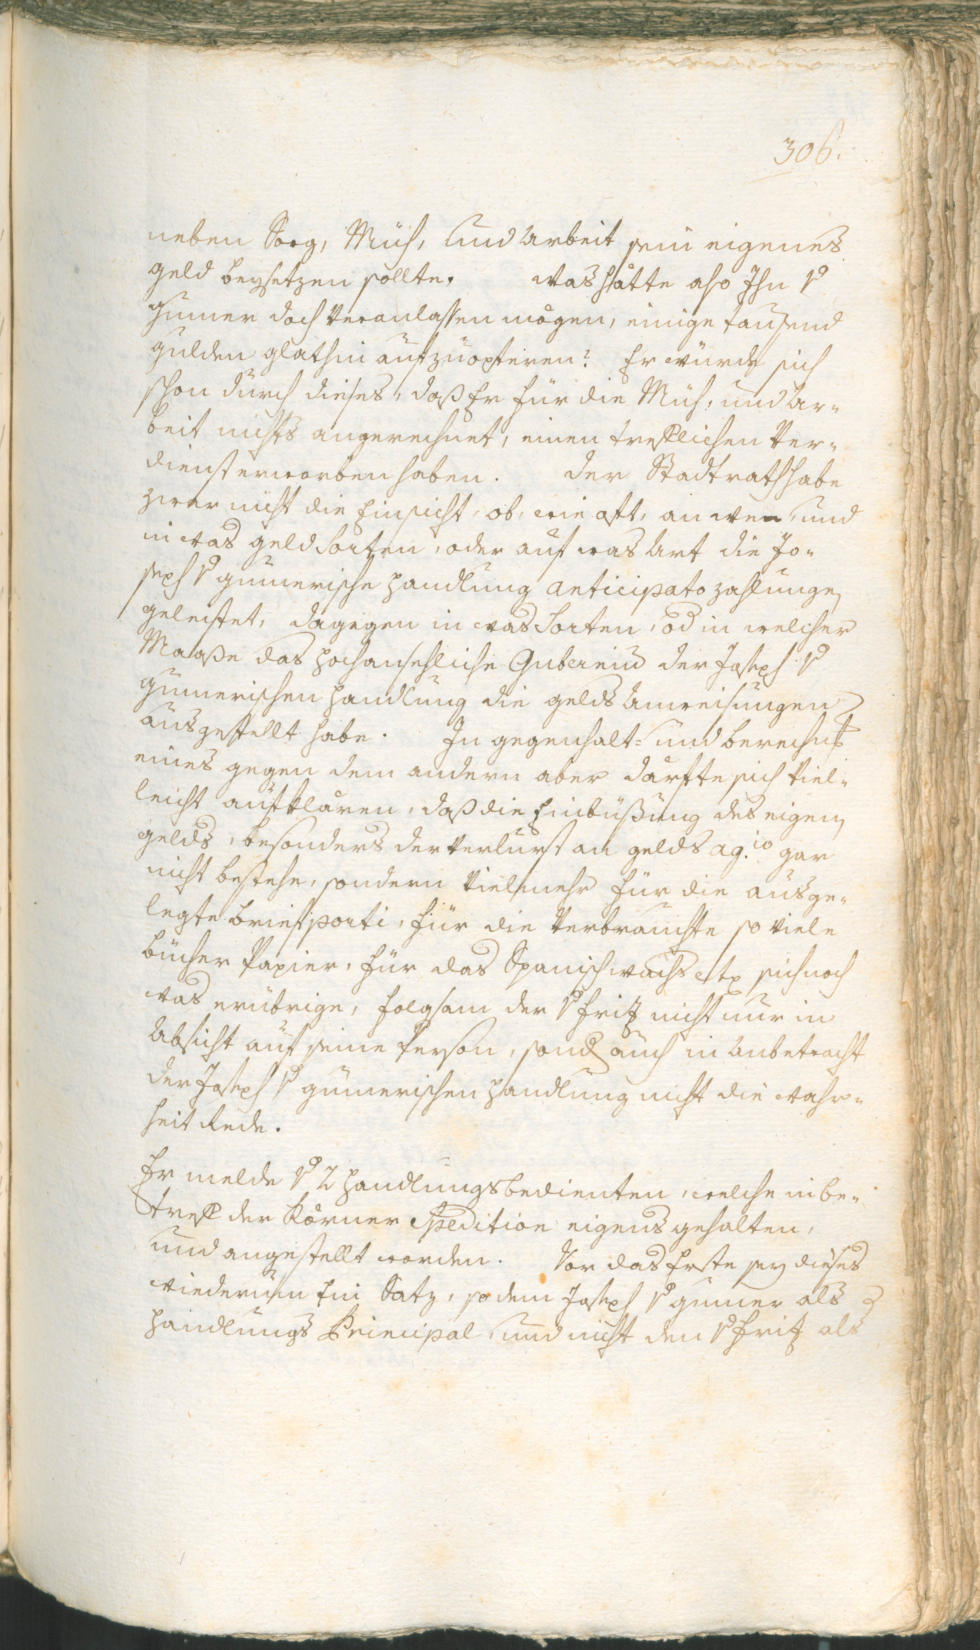 306.
neben Sorg, Müh, und Arbeit sein eigenes
geld beysetzen sollte. Was hätte also Ihn v
Gumer doch veranlassen mögen, einige tausend
gulden glathin aufzuopferen? Er würde sich
schon durch dieses, daß Er für die Müh, und Ar-
beit nichts angerechnet, einen trefflichen Ver-
dienst erworben haben. Der Stadtrath habe
zwar nicht die Einsicht, ob, wie oft, an wen, und
in was geld Sorten, oder auf was Art die Jo-
seph v gumerische Handlung anticipato zahlungen
geleistet, dagegen in was Sorten, od in welcher
Maaße das hochansehliche Gubernium der Joseph v
gumerischen Handlung die gelds Anweisungen
ausgestellt habe. In gegenhalt- und berechnung
eines gegen dem andern aber därfte sich viel-
leicht aufklären, daß die Einbüßung des eigenen
gelds, besonders der Verlurst an gelds ag.io gar
nicht bestehe, sondern vielmehr für die ausge-
legte briefporti, für die verbrauchte so viele
bücher Papier, für das Spanischwachs etc sich noch
was erübrige, folgsam der v Fritz nicht nur in
Absicht auf seine Person, sond auch in Anbetracht
der Joseph v gumerischen Handlung nicht die Wahr-
heit Rede.
Er melde v 2 Handlungsbedienten, welche in be-
treff der Körner Spedition eigens gehalten,
und angestellt worden. Vor das Erste sey dieses
wiederum Ein Satz, so dem Joseph v gumer als
Handlungs Principal, und nicht den v Fritz als